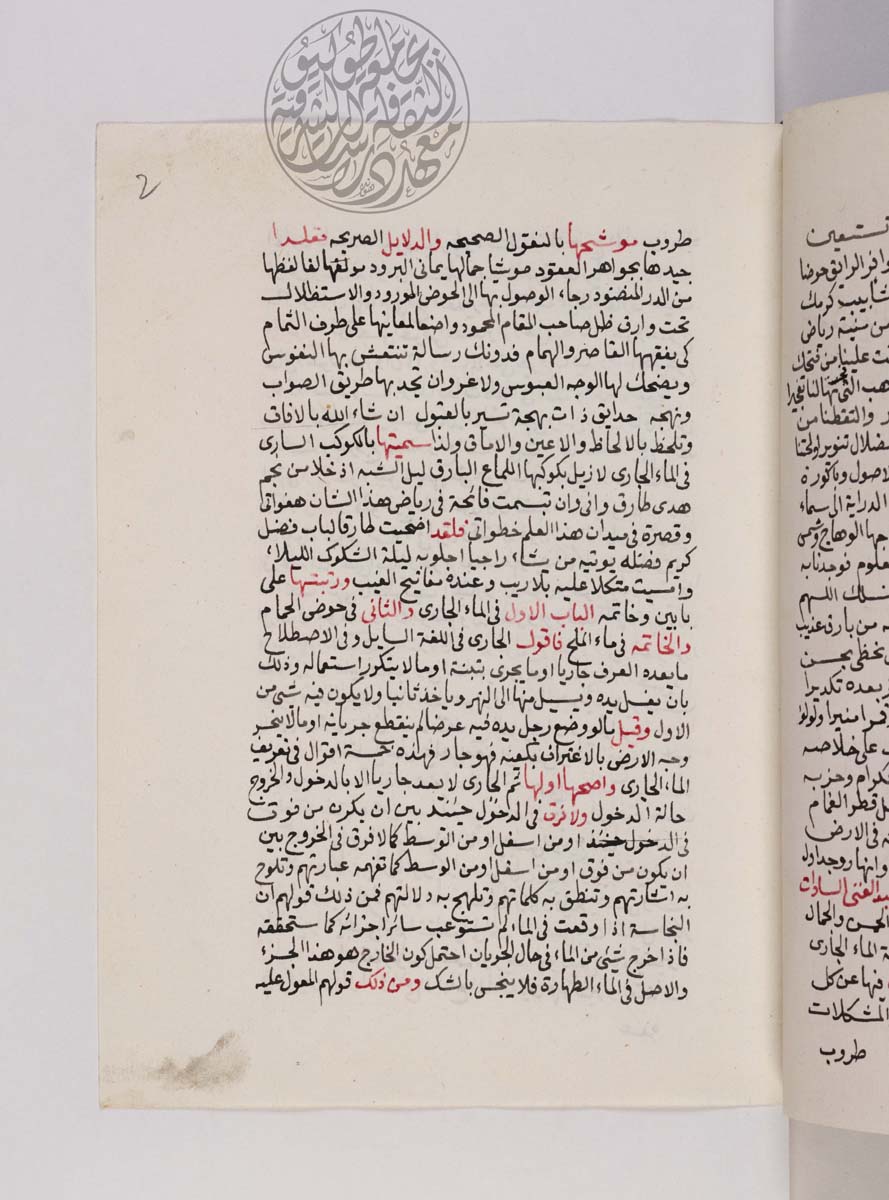 2
طروب موشحها بالنقول الصحيحه والدلايل الصريحه مقلدا
جيدها بجواهر العقود موشيا جمالها يماني البرود مولفها لفا لفظها
من الدر المنضود رجاء الوصول بها الى الحوض المورود والاستظلال
تحت وارق ظل صاحب المقام المحمود واضعا لمعاينها على طرف الثمام
كى يفقهها القاصر والهمام فدونك رسالة تنتعش بها النفوس
ويضحك لها الوجه العبوس ولاغروان تجد بها طريق الصواب
ونهجه حدايق ذات بهجة تسير بالقبول ان شاء الله بالافات
وتلحظ بالالحاظ والاعين والاماق ولذا سميتها بالكوكب السارى
فى الماء الجارى لازيل بكوكبها اللماع البارق ليل الشبه اذ خلا من نجم
هدى طارق وانى وان تبسمت فائحة فى رياض هذا الشان هفواتى
وقصرة فى ميدان هذا العلم خطواتى فلقد اضحيت طارقا لباب فضل
كريم فضله يوتيه من شاء راجيا اجلو به ليلة الشكوك الليلاء
وامسيت متكلا عليه بلاريب وعنده مفاتيح الغيب ورتبتها على
بابين وخاتمه الباب الاول فى الماء الجارى والثانى فى حوض الحمام
والخاتمه فى ماء الملح فاقول الجارى فى اللغة السايل وفى الاصطلاح
ما يعده العرف جاريا او ما يجرى بتبنة او ما لا يتكرر استعماله وذلك
بان يغسل يده ويسيل منها الى النهر وياخذ ثانيا ولا يكون فيه شئ من
الاول وقيل ما لو وضع رجل يده فيه عرضا لم ينقطع جريانه او ما لا ينحسر
وجه الارض بالاغتراف بكفيه فهو جار فهذه خمسة اقوال فى تعريف
الماء الجارى واصحها اولها ثم الجارى لا يعد جاريا الا بالدخول والخروج
حالة الدخول ولا فرق فى الدخول حينئذ بين ان يكون من فوق
فى الدخول حينئذ او من اسفل او من الوسط كما لا فرق فى الخروج بين
ان يكون من فوق او من اسفل او من الوسط كما تفهمه عبارتهم وتلوح
به اشارتهم وتنطق به كلماتهم وتلهج به دلالتهم فمن ذلك قولهم ان
النجاسة اذا وقعت فى الماء لم تستوعب سائر اجزائه كما ستحققه
فاذا خرج شئ من الماء فى حال الجريان احتمل كون الخارج هو هذا الجزء
والاصل فى الماء الطهارة فلا ينجس بالشك ومن ذلك قولهم المعول عليه
نستعين
وافر الرائق حوضا
شابيب كرمك
رياض
علينا من فتحك
والتقطنا من
ضلال تنوير
الاصول وباكورة
الدراية الى سماء
الوهاج وشمس
علوم فوجدنا به
اللهم
من بارق عذيب
نحظى بحسن
بعده تكديرا
قمرا منيرا ولؤلؤ
على خلاصه
كرام وحزبه
قطر الغمام
فى الارض
وانهار وجداول
عبد الغنى السادات
الحسن والجمال
الماء الجارى
فيها عن كل
المشكلات
طروب